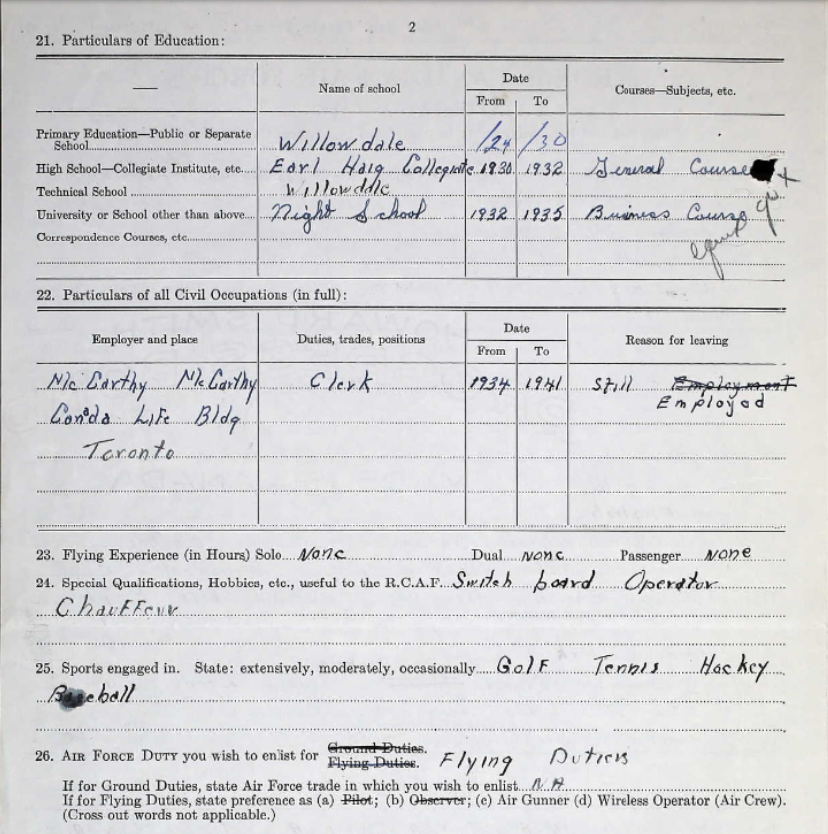 2
21. Particulars of Education:
Name of school
Date
From To
Courses—Subjects, etc.
Primary Education—Public or Separate
School Willowdale /24 /30
High School—Collegiate Institute, etc. Earl Haig Collegiate 1930 1932 General Course
Technical School Willowdale
University or School other than above Night School 1932 1935 Business Course
equiv
Correspondence Courses, etc.
22. Particulars of all Civil Occupations (in full):
Employer and place Duties, trades, positions
Date
From To
Reason for leaving
McCarthy McCarthy Clerk 1934 1941 Still Employment
Employed
Canada Life Bldg
Toronto
23. Flying Experience (in Hours) Solo None Dual None Passenger None
24. Special Qualifications, Hobbies, etc., useful to the R.C.A.F. Switch board Operator
Chauffeur
25. Sports engaged in. State: extensively, moderately, occasionally Golf Tennis Hockey
Baseball
26. AIR FORCE DUTY you wish to enlist for Ground Duties.
Flying Duties. Flying Duties
If for Ground Duties, state Air Force trade in which you wish to enlist N A
If for Flying Duties, state preference as (a) Pilot; (b) Observer; (c) Air Gunner (d) Wireless Operator (Air Crew).
(Cross out words not applicable.)